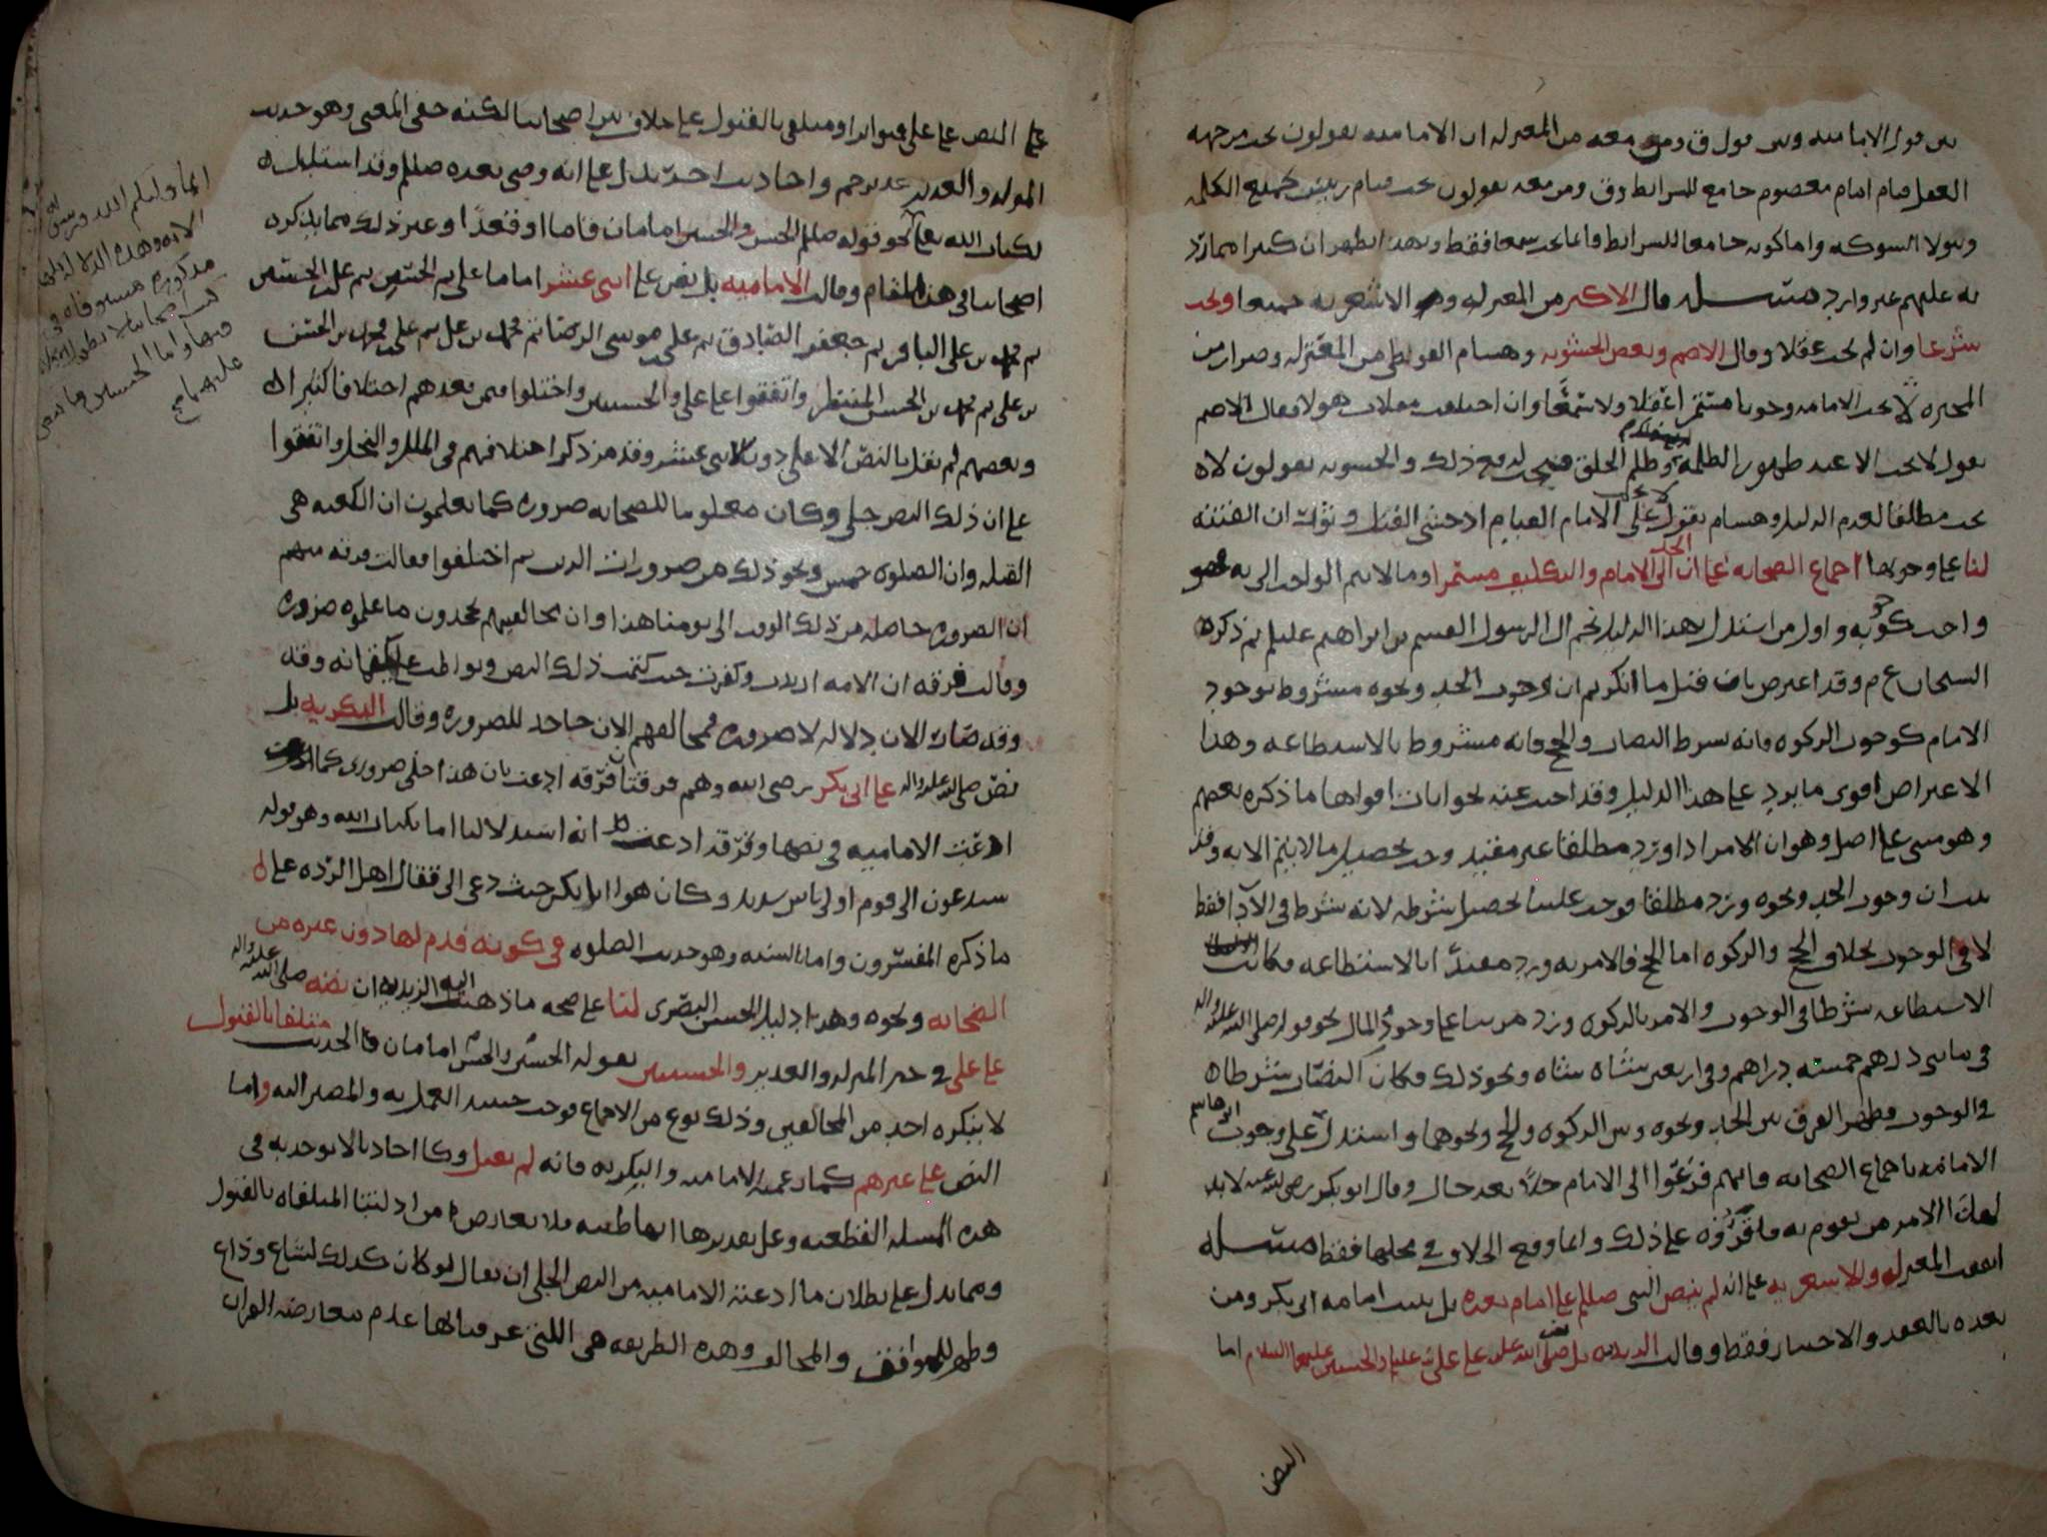 بين قول الإمامية وبين قول ق ومن معه من المعتزلة ان الإمامية يقولون تجب من جهة
العقل قيام امام معصوم جامع للشرائط وق ومن معه يقولون يجب قيام رئيس يجمع الكلمة
وتولا الشوكة واما كونه جامعا للشرائط فانما يجب سمعا فقط وبهذا يظهر ان كثيرا مما يرد
به عليهم غير وارد مسئلة قال الاكثر من المعتزلة والاشعرية جميعا وتجب
شرعا وان لم تجب عقلا وقال الاصم وبعض الحشوية وهشام الفوطي من المعتزلة وضرار من
المجبرة لا تجب الامامة وجوبا مستمرا عقلا ولا سمعا وان اختلفت مقالات هولا فقال الاصم
يقول لا تجب الا عند ظهور الظلمة وظلم الخلق فيجب مع ذلك والحشوية يقولون لا
تجب مطلقا لعدم الدليل وهشام يقول لا يجب على الامام القيام اذ خشي القتل وثوران الفتنة
لنا على وجوبها اجماع الصحابة على ان الحد الى الامام والتكليف مستمر وما لا يتم الواجب الا به
واجب كوجوبه واول من استدل بهذا الدليل نجم ال الرسول القسم بن ابراهيم عليلم ثم ذكره
الشيخان ع م وقد اعترض بان قيل ما انكرتم ان وجوب الحد ونحوه مشروط بوجود
الامام كوجوب الزكوة فانه بشرط النصاب والحج فانه مشروط بالاستطاعة وهذا
الاعتراض اقوى ما يرد على هذا الدليل وقد اجيب عنه بجوابات اقواها ما ذكره بعضهم
وهو مبني على اصل وهو ان الامر اذا ورد مطلقا غير مقيد وجب تحصيل ما لا يتم الا به وقد
ثبت ان وجوب الحد ونحوه ورد مطلقا فوجب علينا تحصيل شرطه لانه شرط في الادا فقط
لا في الوجوب بخلاف الحج والزكوة اما الحج فالامر به ورد مقيدا بالاستطاعة فكانت
الاستطاعة شرطا في الوجوب والامر بالزكوة ورد مرتبا على وجود المال نحو قوله صلى الله عليه واله
في مايتي درهم خمسة دراهم وفي اربعين شاة شاة ونحو ذلك فكان النصاب شرطا
في الوجوب فظهر الفرق بين الحد ونحوه وبين الزكوة والحج ونحوهما واستدل ابو هاشم على وجوب
الامامة باجماع الصحابة فانهم فزعوا الى الامام حالا بعد حال وقال ابو بكر رضي الله عنه لا بد
لهذا الامر من يقوم به فاقروه على ذلك وانما وقع الخلاف في محلها فقط مسئلة
اتفقت المعتزلة والاشعرية على انه لم ينص النبي صللم على امام بعده بل يثبت امامة ابي بكر ومن
بعده بالعقد والاختيار فقط وقالت الزيدية بل نص صلى الله عليه على علي عليلم والحسنين عليهما السلام اما
النص
على النص على علي فتواترا ومتلقى بالقبول على خلاف بين اصحابنا لكنه خفي المعنى وهو حديث
المنزلة والغدير غدير خم واحاديث اخر تدل على انه وصي بعده صللم وقد استدل
بكتاب الله تعالى نحو قوله صللم الحسن والحسين امامان قاما او قعدا وغير ذلك مما يذكره
اصحابنا في هذا المقام وقالت الامامية بل نص على اثنى عشر اماما علي ثم الحسن ثم الحسين
ثم محمد بن علي الباقر ثم جعفر الصادق ثم علي موسى الرضا ثم محمد بن علي ثم علي محمد بن الحسن
بن علي ثم محمد بن الحسن المنتظر واتفقوا على علي والحسنين واختلفوا فمن بعدهم اختلافا كثيرا
وبعضهم لم يقل بالنص الا على دون الاثني عشر وقد مر ذكر اختلافهم في الملل والنحل واتفقوا
على ان ذلك النص جلي وكان معلوما للصحابة ضرورة كما يعلمون ان الكعبة هي
القبلة وان الصلوة خمس ونحو ذلك من ضروريات الدين ثم اختلفوا فقالت فرقة منهم
ان الضرورة حاصلة من ذلك الوقت الى يومنا هذا وان مخالفيهم يجحدون ما علموه ضرورة
وقالت فرقة ان الامة ارتدت وكفرت حيث كتمت ذلك النص وتواطت على كتمانه وقد
وقد صار الان دلالة لا ضرورة فمخالفهم الان جاحد للضرورة وقالت البكرية بل
نص صلى الله عليه واله على ابي بكر رضي الله وهم فرقتان فرقة ادعت بان هذا جلي ضروري كما
ادعت الامامية في نصها وفرقة ادعت انه استدلالا اما بكتاب الله وهو قوله
ستدعون الى قوم اولي باس شديد وكان هو ابا بكر حيث دعى الى قتال اهل الردة على
ما ذكره المفسرون واما بالسنة وهو حديث الصلوة في كونه قدم لها دون غيره من
الصحابة ونحوه وهذا دليل الحسن البصري لنا على صحة ما ذهبت اليه الزيدية ان نصه صلى الله عليه واله
على علي في خبر المنزلة والغدير والحسنين بقوله الحسن والحسين امامان فالحديث متلقا بالقبول
لا ينكره احد من المخالفين وذلك نوع من الاجماع فوجب حينئذ العمل به والمصير اليه واما
النص على غيرهم كما زعمته الامامية والبكرية فانه لم يقبل وكا احاد ما لا يوخذ به في
هذه المسئلة القطعية وعلى تقديرها انها قاطعة فلا تعارض من ادلتنا المتلقاه بالقبول
ومما يدل على بطلان ما ادعته الامامية من النص الجلي ان يقال لو كان كذلك لشاع وذاع
وظهر للموافق والمخالف وهذه الطريقة هي اللتي عرفنا بها عدم معارضة القران